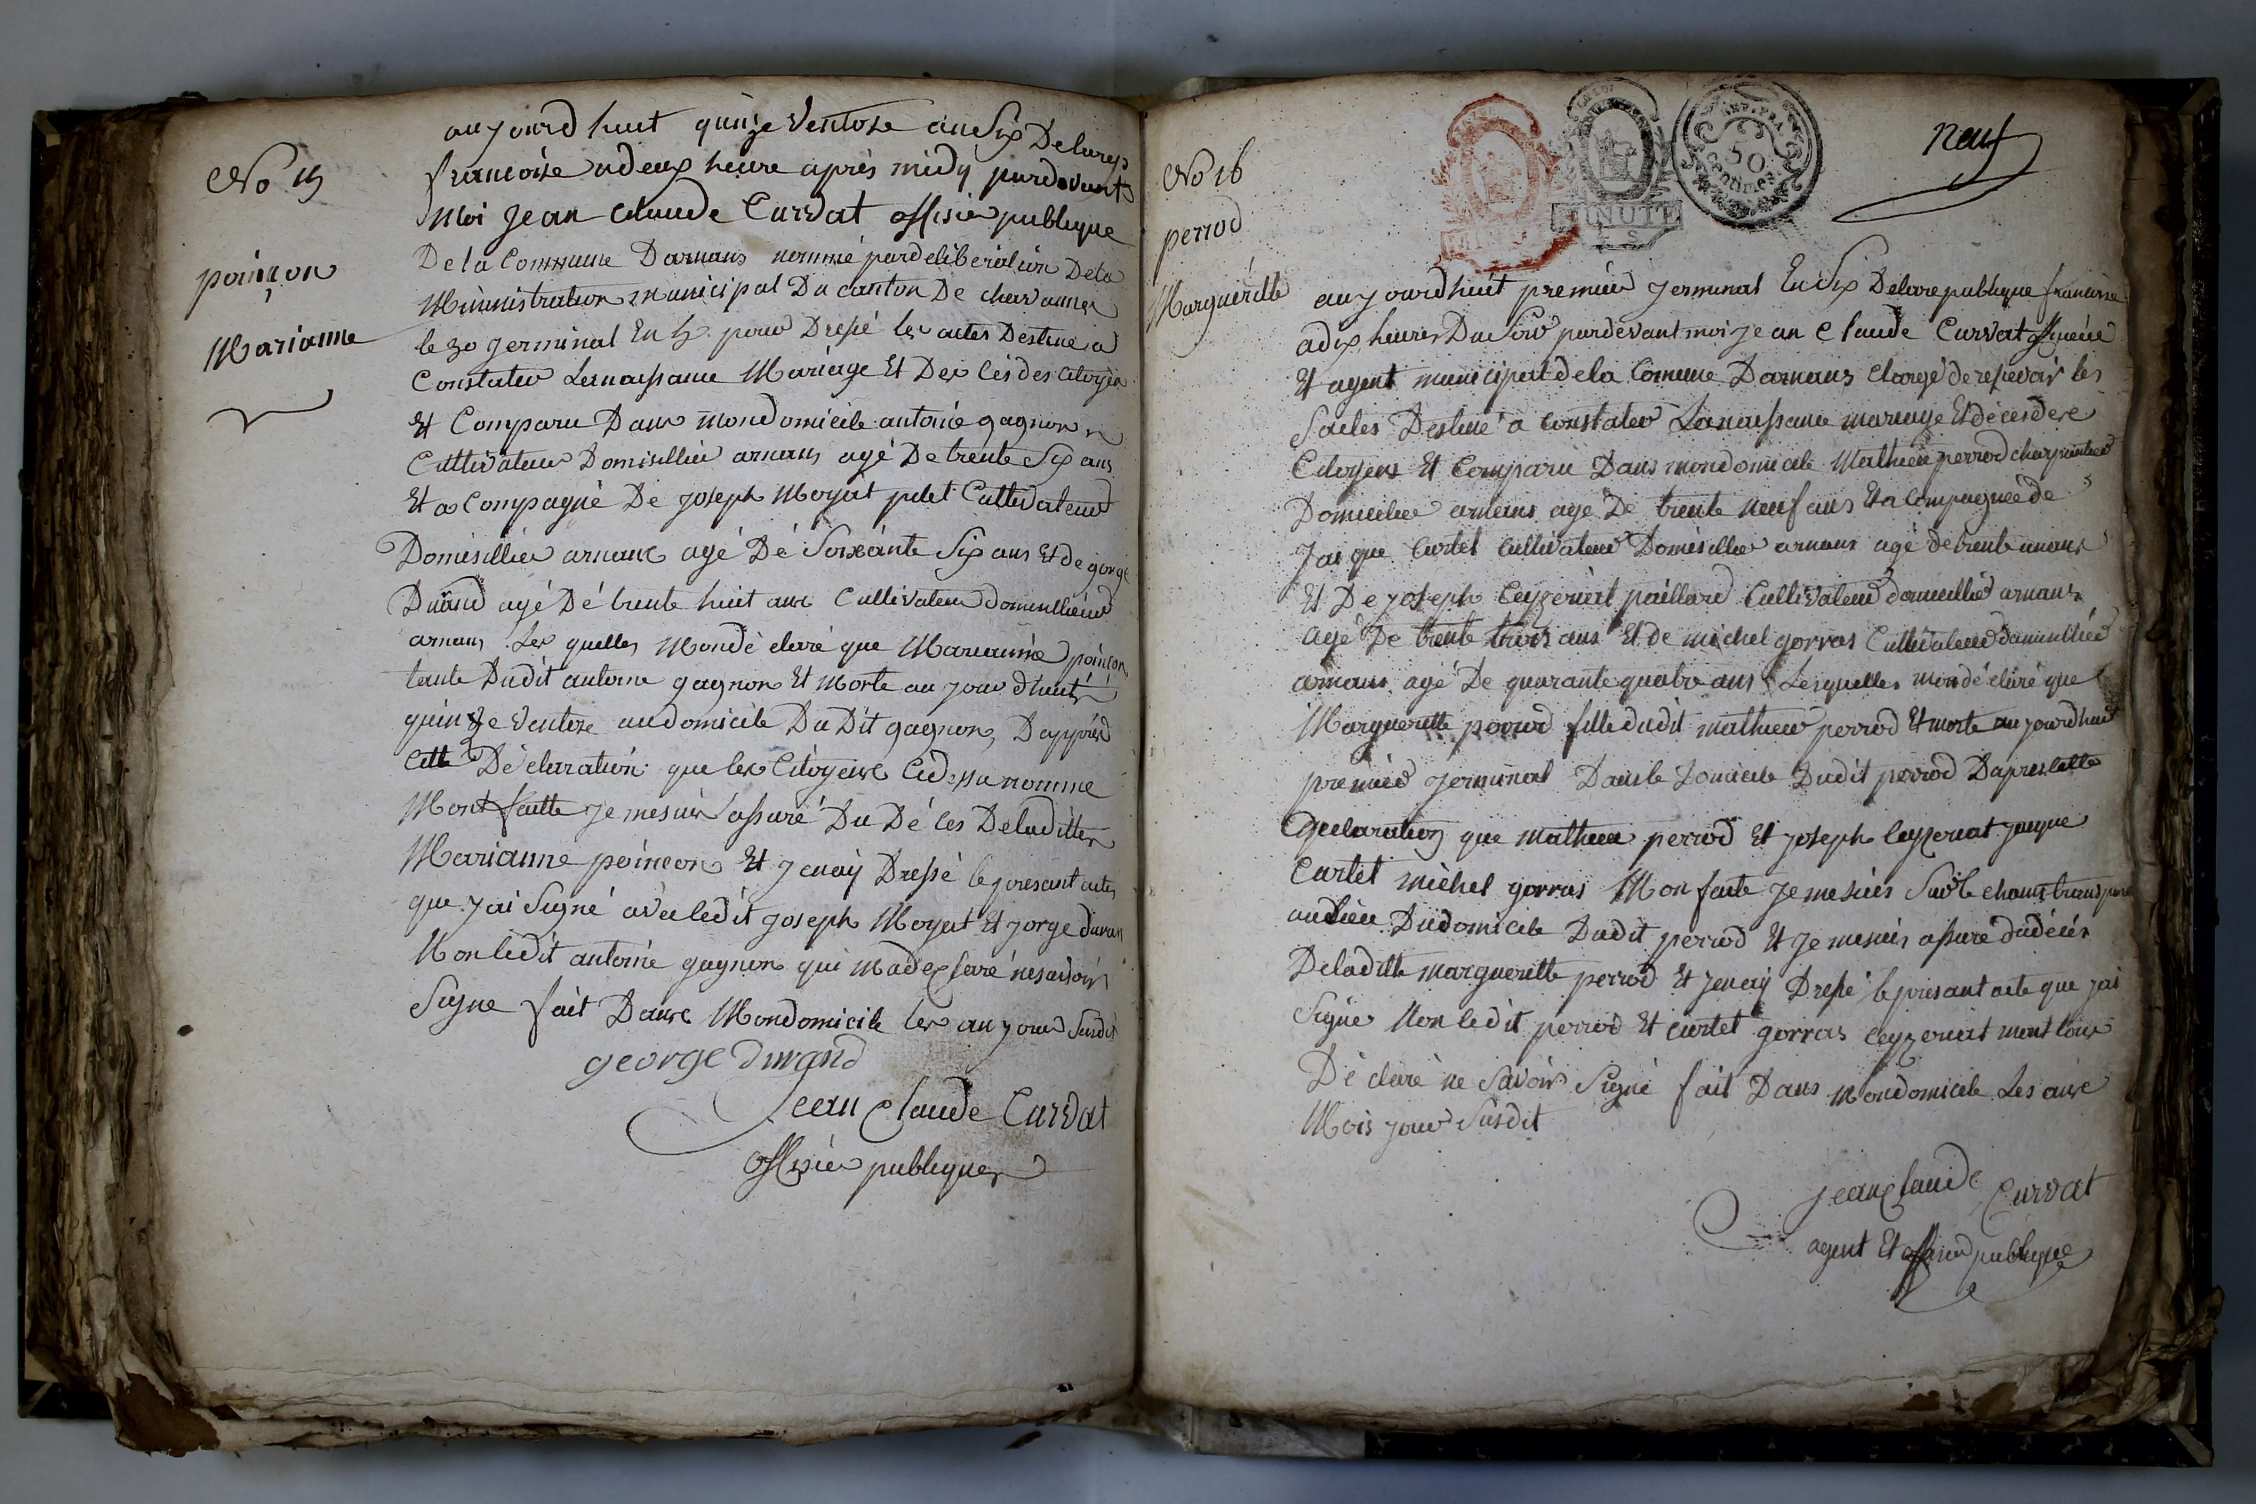 No 15
poinçon
Marianne
aujourdhuit quinze Ventose an Six Delarep
francoise adeux heure après midy pardevant
Moi Jean Claude Curvat offisie publique
De la Commune Darnans nommé par deliberation Dela
Mministration municipal Du canton De chavannes
le 30 germinal En 5 pour Dressé les actes Destine a
Constater Lesnaissance Mariage Et Des Cés des Citoyen
Et Comparu Dans mondomicile antoine gagnon
Cultivateur Domisillié arnans agé De trente Six ans
Et acompagné De joseph Moyat petet Cultivateur
Domisillié arnans agé Dé Soixante Six ans Et de gorge
Durand agé Dé trente huit ans Cultivateur domisillié
arnans Les quelles Mondé claré que Marianne poinçon
tante Dudit antoine gagnon Et Morte au jour dhuit
quinze Ventose audomicile Du Dit gagnon, Dapprès
Cette Déclaration que les Citoyens Cidessu nomme
Mont faitte Je mesuis assuré Du Dé ces Deladitte
Marianne poincon Et Jenay Dressé le presant actes
que Jai Signé avec ledit joseph Moyat Et jorge duran
Non ledit antoine gagnon qui Madexlaré nesavoir
Signe fait Dans Mondomicile les an jour Susdit
george durand
Jean Claude Curvat
offisie publique
neuf
RÉP. FRA.
50
Centimes
MINUTE
No 16
perrod
Margueritte
aujourdhuit premier Jerminal En Six Delarepublique francoise
adix heures Du Soir pardevant moi Jean Claude Curvat
Et agent municipal dela Comune Darnans Chargé de resevoir les
Sactes Destiné a Constater Lanaissance mariage Et déces de ce
Citoyens Et Comparu Dans mondomicile Mathieu perrod charpentier
Domicilie arnans agé De trente neuf ans Et acompagnée de
Jaique Curtet Cultivateur Domisillie arnans agé detrente unans
Et De joseph Ceyzeriat paillard Cultivateur domicillié arnans
agé De trente trois ans Et de michel gorras Cultivateur domicillié
arnans agé De quarante quatre ans Lesquelles mondé claré que
Marguerette perrod fille dudit mathieu perrod Et morte aujourdhuit
premier Jerminal Dans le Domicile Dudit perrod Dapres cette
Declaration que mathieu perrod Et joseph Ceyzeriat jaque
Curtet michel gorras Mon faite Je mesuis Sur le chams transporté
audieu Dudomicile Dudit perrod Et Je mesuis assuré dudécés
Deladitte marguerette perrod Et Jenay Dressé le presant acte que jai
Signé Non ledit perrod Et Curtet gorras Ceyzeriat mont tous
Dé claré ne Savoir Signé fait Dans mondomicile Les ans
Mois jour Susdit
jean Claude Curvat
agent Et offisie publique